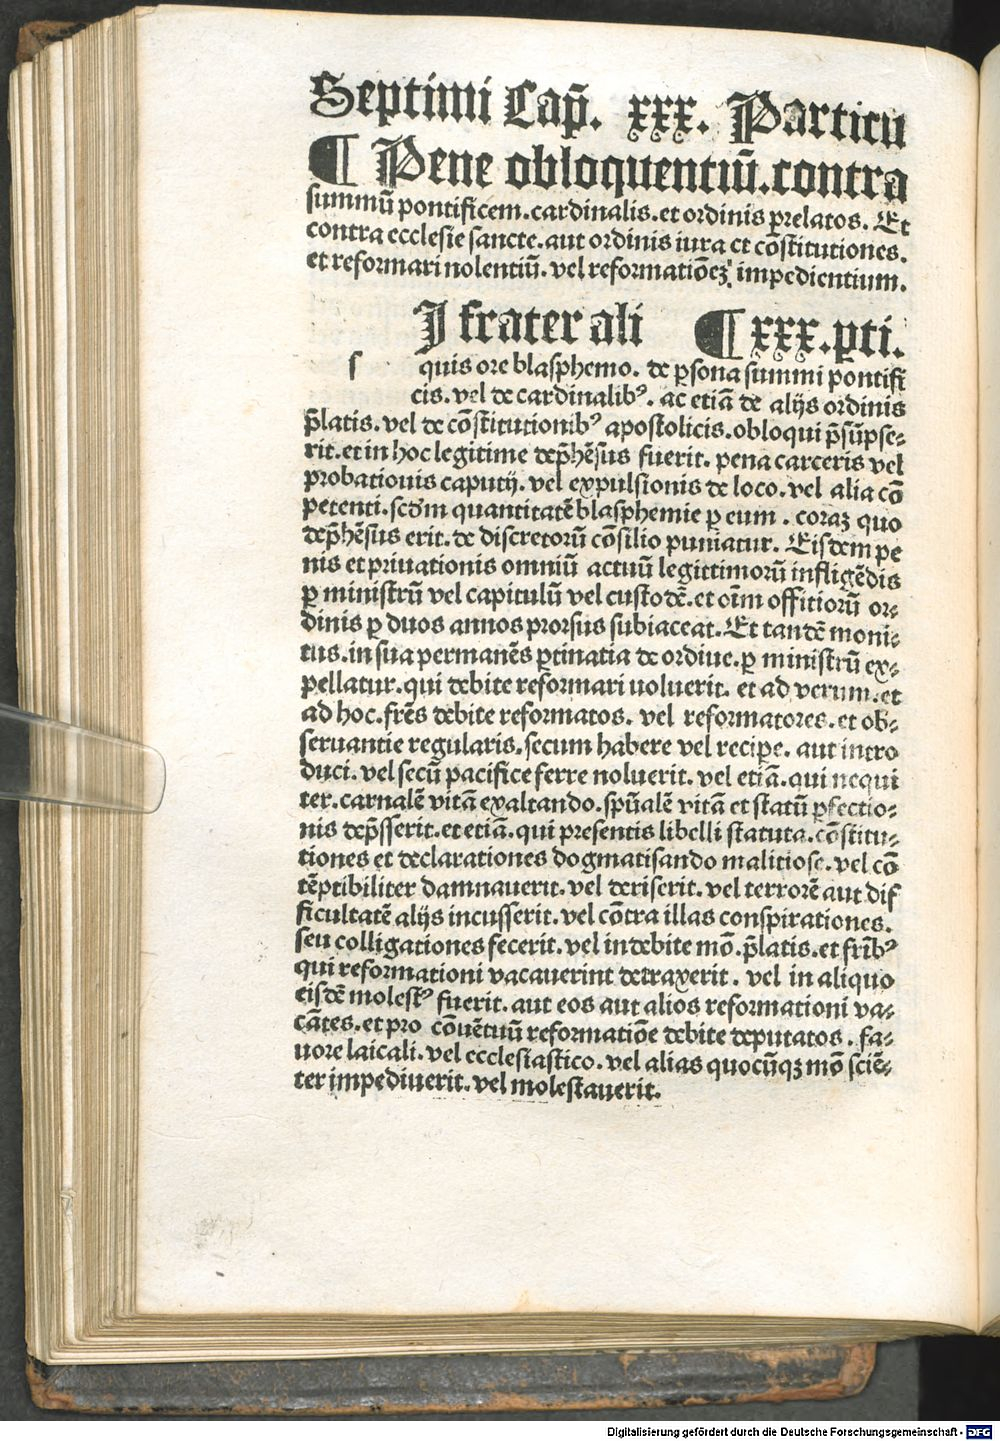 Septimi Cap̃. xxx. Particu
¶ Pene obloquentiũ.contra
summũ pontificem.cardinalis.et ordinis p̱relatos. Et
contra ecclesie sancte.aut ordinis iura et cõstitutiones.
et reformari nolentiũ.vel reformatiõeꝫ impedientium.
I frater ali ¶ xxx.ꝑti.
s quis ore blasphemo. de ꝑsona summi pontifi
cis.vel de cardinalibꝰ. ac etiã de alijs ordinis
p̃latis.vel de cõstitutionibꝰ apostolicis.obloqui p̃sũpse-
rit.et in hoc legitime dep̃hẽsus fuerit. pena carceris vel
probationis caputij.vel expulsionis de loco.vel alia cõ
petenti.scd̃m quantitatẽ blasphemie ꝑ eum . coraꝫ quo
dep̃hẽsus erit.de discretorũ cõsilio puniatur. Eisdem pe
nis et priuationis omniũ actuũ legittimorũ infligẽdis
ꝑ ministrũ vel capitulũ vel custodẽ.et oĩm offitiorũ or-
dinis ꝑ duos annos prorsus subiaceat.Et tandẽ moni-
tus.in sua permanẽs ꝑtinatia de ordine.ꝑ ministrũ ex-
pellatur.qui debite reformari uoluerit. et ad verum.et
ad hoc.frẽs debite reformatos. vel reformatores.et ob-
seruantie regularis.secum habere vel recipe. aut intro
duci.vel secũ pacifice ferre noluerit. vel etiã.qui nequi
ter.carnalẽ vitã exaltando.spũalẽ vitã et statũ ꝑfectio-
nis dep̃sserit.et etiã.qui presentis libelli statuta.cõstitu-
tiones et declarationes dogmatisando malitiose.vel cõ
tẽptibiliter damnauerit.vel deriserit.vel terrorẽ aut dif
ficultatẽ alijs incusserit.vel cõtra illas conspirationes.
seu colligationes fecerit.vel indebite mõ.p̃latis.et frĩbꝰ
qui reformationi vacauerint detraxerit. vel in aliquo
eisdẽ molestꝰ fuerit.aut eos aut alios reformationi va-
cãtes.et pro cõuẽtuũ reformatiõe debite deputatos. fa-
uore laicali.vel ecclesiastico.vel alias quocũqꝫ mõ sciẽ-
ter impediuerit.vel molestauerit.
Digitalisierung gefördert durch die Deutsche Forschungsgemeinschaft - DFG